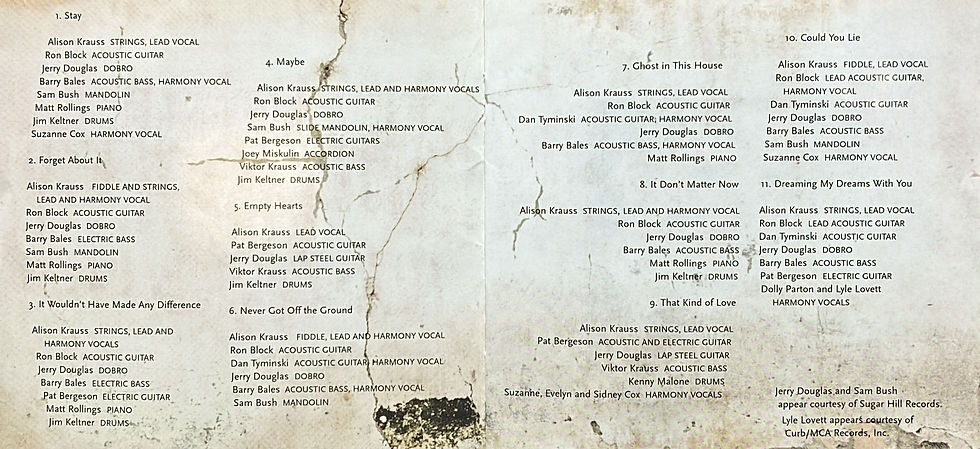 1. Stay
Alison Krauss STRINGS, LEAD VOCAL
Ron Block ACOUSTIC GUITAR
Jerry Douglas DOBRO
Barry Bales ACOUSTIC BASS, HARMONY VOCAL
Sam Bush MANDOLIN
Matt Rollings PIANO
Jim Keltner DRUMS
Suzanne Cox HARMONY VOCAL
2. Forget About It
Alison Krauss FIDDLE AND STRINGS,
LEAD AND HARMONY VOCAL
Ron Block ACOUSTIC GUITAR
Jerry Douglas DOBRO
Barry Bales ELECTRIC BASS
Sam Bush MANDOLIN
Matt Rollings PIANO
Jim Keltner DRUMS
3. It Wouldn't Have Made Any Difference
Alison Krauss STRINGS, LEAD AND
HARMONY VOCALS
Ron Block ACOUSTIC GUITAR
Jerry Douglas DOBRO
Barry Bales ELECTRIC BASS
Pat Bergeson ELECTRIC GUITAR
Matt Rollings PIANO
Jim Keltner DRUMS
4. Maybe
Alison Krauss STRINGS, LEAD AND HARMONY VOCALS
Ron Block ACOUSTIC GUITAR
Jerry Douglas DOBRO
Sam Bush SLIDE MANDOLIN, HARMONY VOCAL
Pat Bergeson ELECTRIC GUITARS
Joey Miskulin ACCORDION
Viktor Krauss ACOUSTIC BASS
Jim Keltner DRUMS
5. Empty Hearts
Alison Krauss LEAD VOCAL
Pat Bergeson ACOUSTIC GUITAR
Jerry Douglas LAP STEEL GUITAR
Viktor Krauss ACOUSTIC BASS
Jim Keltner DRUMS
6. Never Got Off the Ground
Alison Krauss FIDDLE, LEAD AND HARMONY VOCAL
Ron Block ACOUSTIC GUITAR
Dan Tyminski ACOUSTIC GUITAR, HARMONY VOCAL
Jerry Douglas DOBRO
Barry Bales ACOUSTIC BASS, HARMONY VOCAL
Sam Bush MANDOLIN
7. Ghost in This House
Alison Krauss STRINGS, LEAD VOCAL
Ron Block ACOUSTIC GUITAR
Dan Tyminski ACOUSTIC GUITAR; HARMONY VOCAL
Jerry Douglas DOBRO
Barry Bales ACOUSTIC BASS, HARMONY VOCAL
Matt Rollings PIANO
8. It Don't Matter Now
Alison Krauss STRINGS, LEAD AND HARMONY VOCAL
Ron Block ACOUSTIC GUITAR
Jerry Douglas DOBRO
Barry Bales ACOUSTIC BASS
Matt Rollings PIANO
Jim Keltner DRUMS
9. That Kind of Love
Alison Krauss STRINGS, LEAD VOCAL
Pat Bergeson ACOUSTIC AND ELECTRIC GUITAR
Jerry Douglas LAP STEEL GUITAR
Viktor Krauss ACOUSTIC BASS
Kenny Malone DRUMS
Suzanne, Evelyn and Sidney Cox HARMONY VOCALS
10. Could You Lie
Alison Krauss FIDDLE, LEAD VOCAL
Ron Block LEAD ACOUSTIC GUITAR,
HARMONY VOCAL
Dan Tyminski ACOUSTIC GUITAR
Jerry Douglas DOBRO
Barry Bales ACOUSTIC BASS
Sam Bush MANDOLIN
Suzanne Cox HARMONY VOCAL
11. Dreaming My Dreams With You
Alison Krauss STRINGS, LEAD VOCAL
Ron Block LEAD ACOUSTIC GUITAR
Dan Tyminski ACOUSTIC GUITAR
Jerry Douglas DOBRO
Barry Bales ACOUSTIC BASS
Pat Bergeson ELECTRIC GUITAR
Dolly Parton and Lyle Lovett
HARMONY VOCALS
Jerry Douglas and Sam Bush
appear courtesy of Sugar Hill Records.
Lyle Lovett appears courtesy of
Curb/MCA Records, Inc.